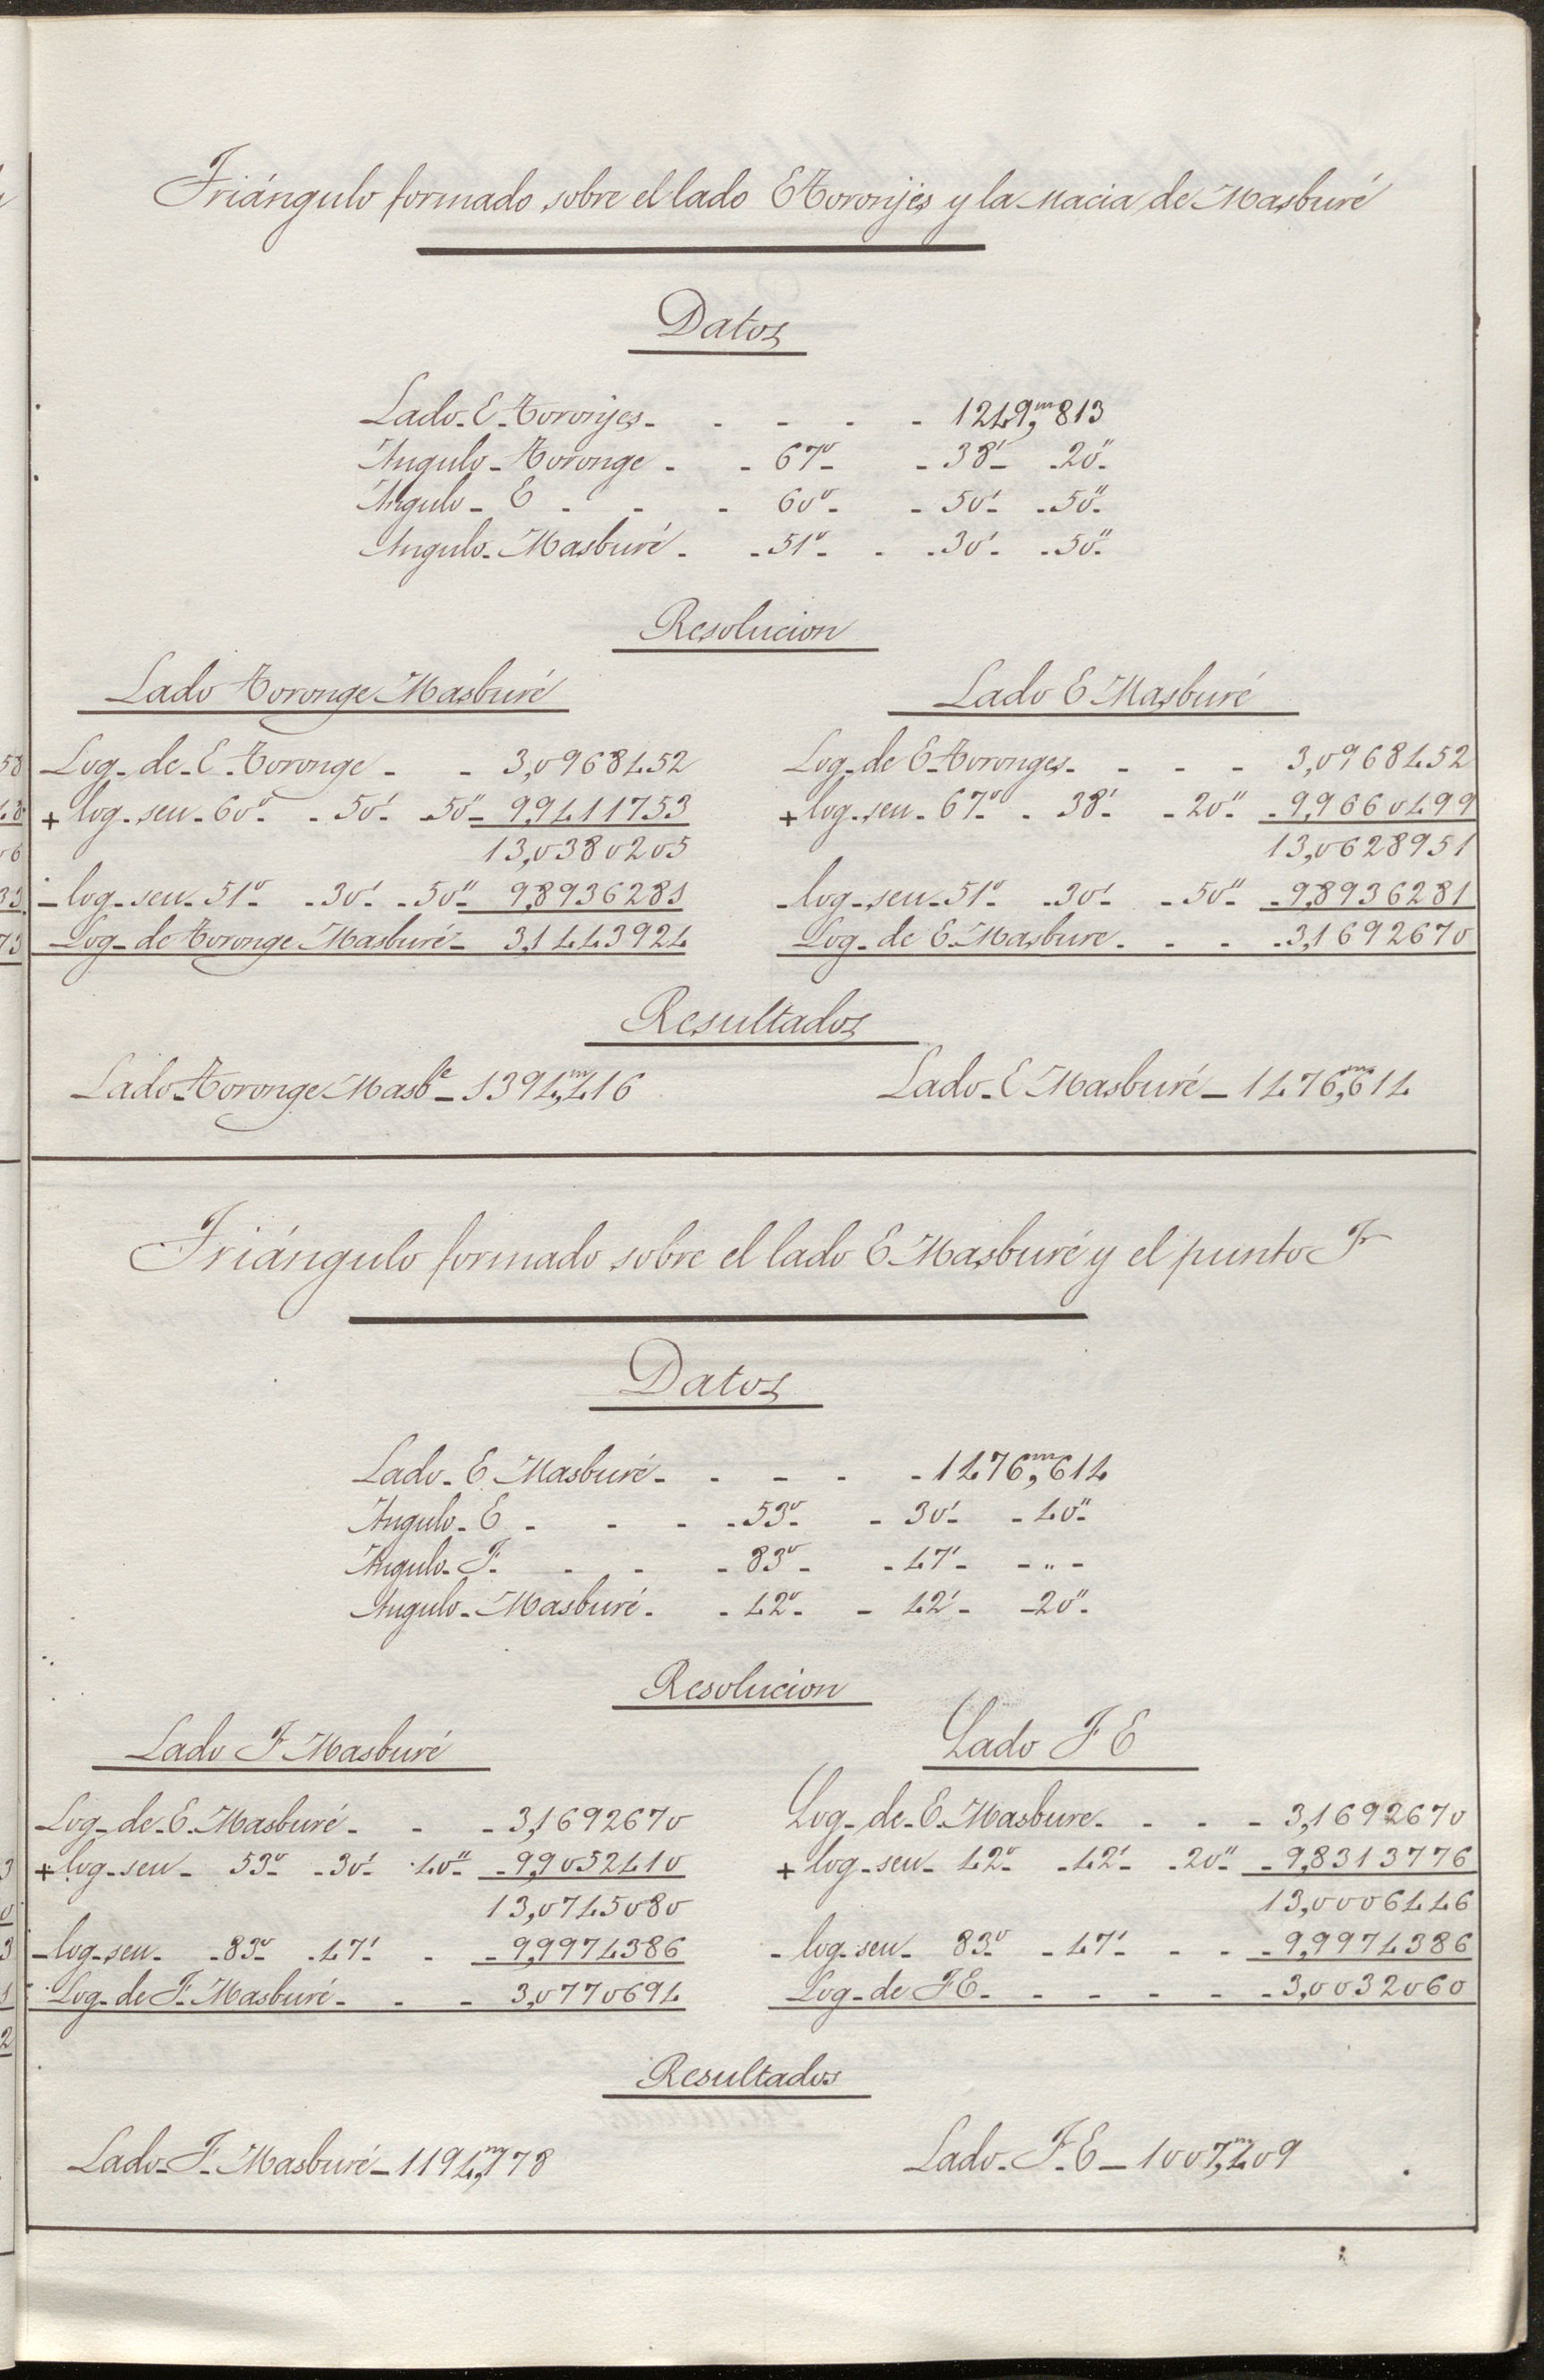 Triángulo formado sobre el lado E Toronjes y la Macia de Masburé
Datos
Lado - E - Toronjes - - - - - 1249,ᵐ813
Angulo - Toronge - - 67º - - 38' - 20"
Angulo - E - - - 60º - - 50' - 50"
Angulo - Masburé - - 51º - - 30' - 50"
Resolucion
Lado Toronge Masburé
Log - de - E - Toronge - - 3,0968452
+ log - sen - 60º - - 50' - 50" - 9,9411753
13,0380205
- log - sen - 51º - - 30' - 50" - 9,8936281
Log - de Toronge Masburé - 3,1443924
Lado E Masburé
Log - de E - Toronges - - - - 3,0968452
+ log - sen - 67º - - 38' - 20" - 9,9660499
13,0628951
- log - sen - 51º - 30' - 50" - 9,8936281
Log - de E - Masbure - - - 3,1692670
Resultados
Lado - Toronge Masbᵉ - 1394,ᵐ416
Lado - E Masburé - 1476,ᵐ614
Triángulo formado sobre el lado E Masburé y el punto F
Datos
Lado - E Masburé - - - - 1476,ᵐ614
Angulo - E - - - - 53º - - 30' - 40"
Angulo - F - - - - 83º - - 47' - " -
Angulo - Masburé - - 42º - - 42' - 20"
Resolucion
Lado F Masburé
Log - de - E - Masburé - - - 3,1692670
+ log - sen - 53º - 30' - 40" - 9,9052410
13,0745080
- log - sen - - 83º - 47' - - 9,9974386
Log - de F - Masburé - - - 3,0770694
Lado F E
Log - de - E - Masbure - - - 3,1692670
+ log - sen - 42º - 42' - 20" - 9,8313776
13,0006446
- log - sen - 83º - 47' - - - 9,9974386
Log - de F E - - - - - - 3,0032060
Resultados
Lado - F - Masburé - 1194,ᵐ178
Lado - F - E - 1007,ᵐ409